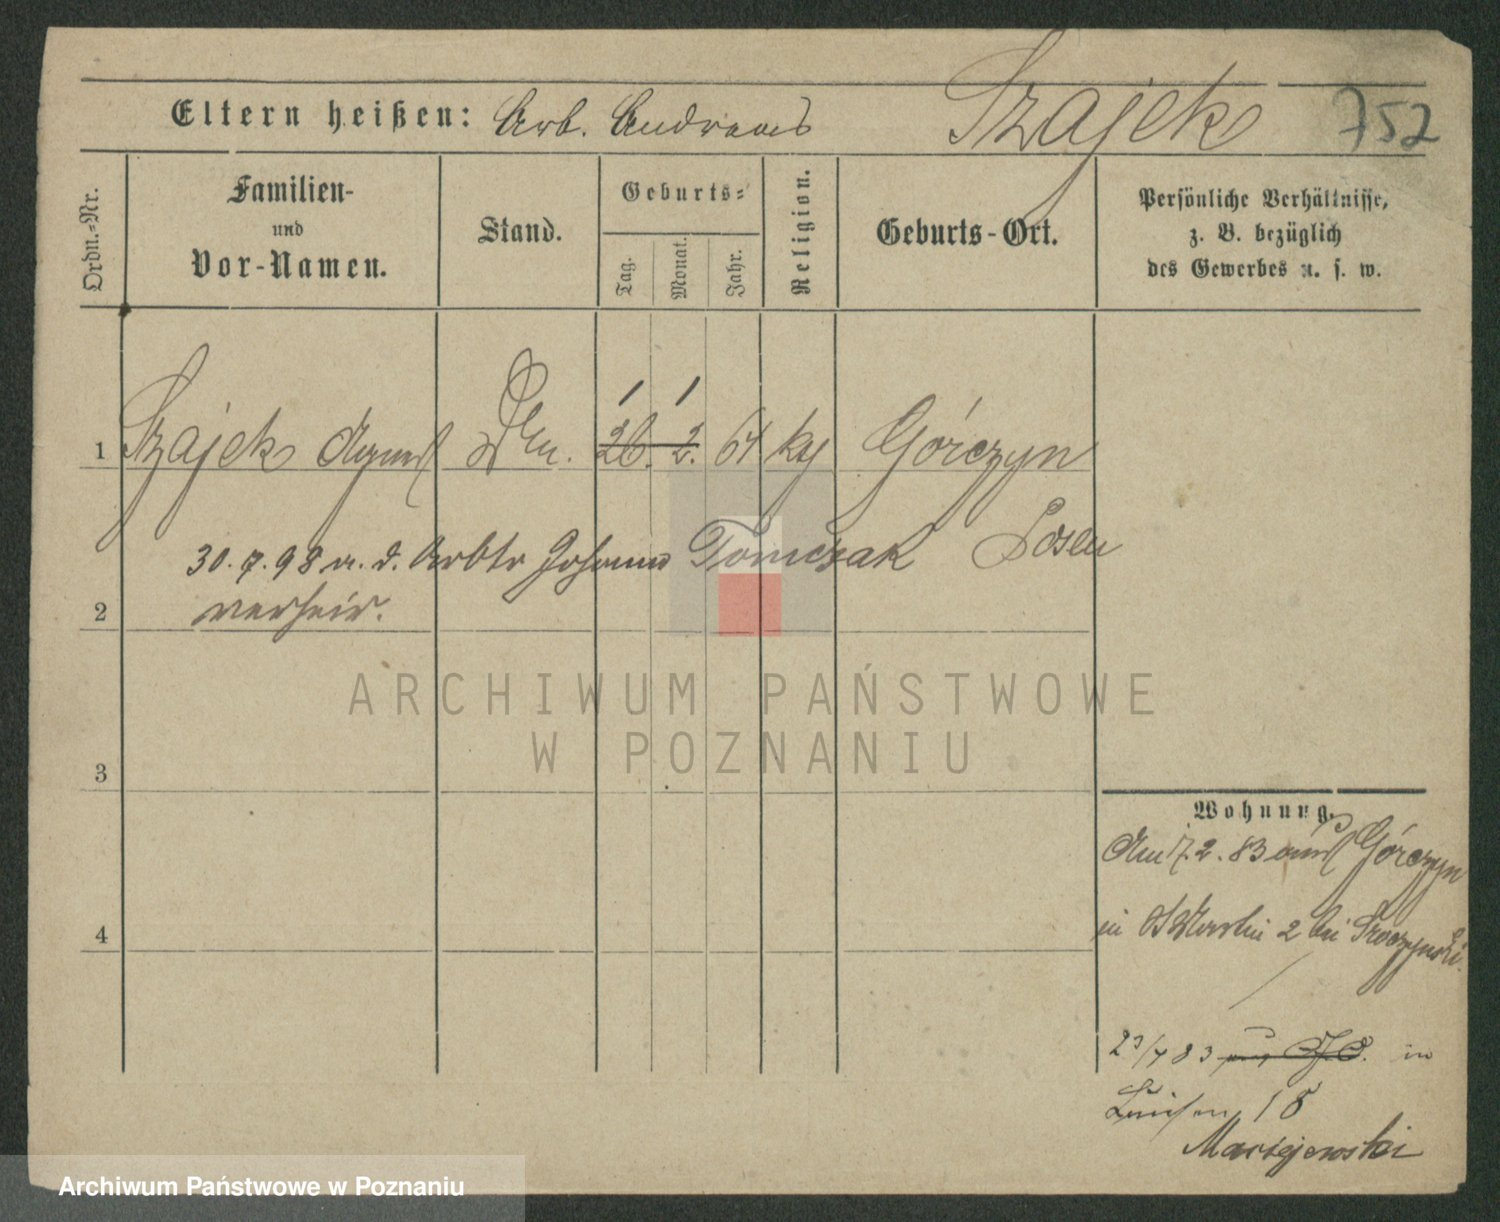 Eltern heißen: Arb. Andreas Szajek 752
Ordn.-Nr.
Familien-
und
Vor-Namen.
Stand.
Geburts-
Tag.
Monat.
Jahr.
Religion.
Geburts-Ort.
Persönliche Verhältnisse,
z. B. bezüglich
des Gewerbes u. s. w.
1 1
1 Szajek Agnes 26. 2. 64 kg Górczyn
30. 7. 98 a. d. Arbtr Johann Tomczak Posen
2 verheir.
ARCHIWUM PAŃSTWOWE
W POZNANIU
3
4
Wohnung.
Am 7. 2. 83 aus Górczyn
in St Martin 2 bei Sroczynski.
23/7 83 in
Luisen 18
Maciejewski
Archiwum Państwowe w Poznaniu